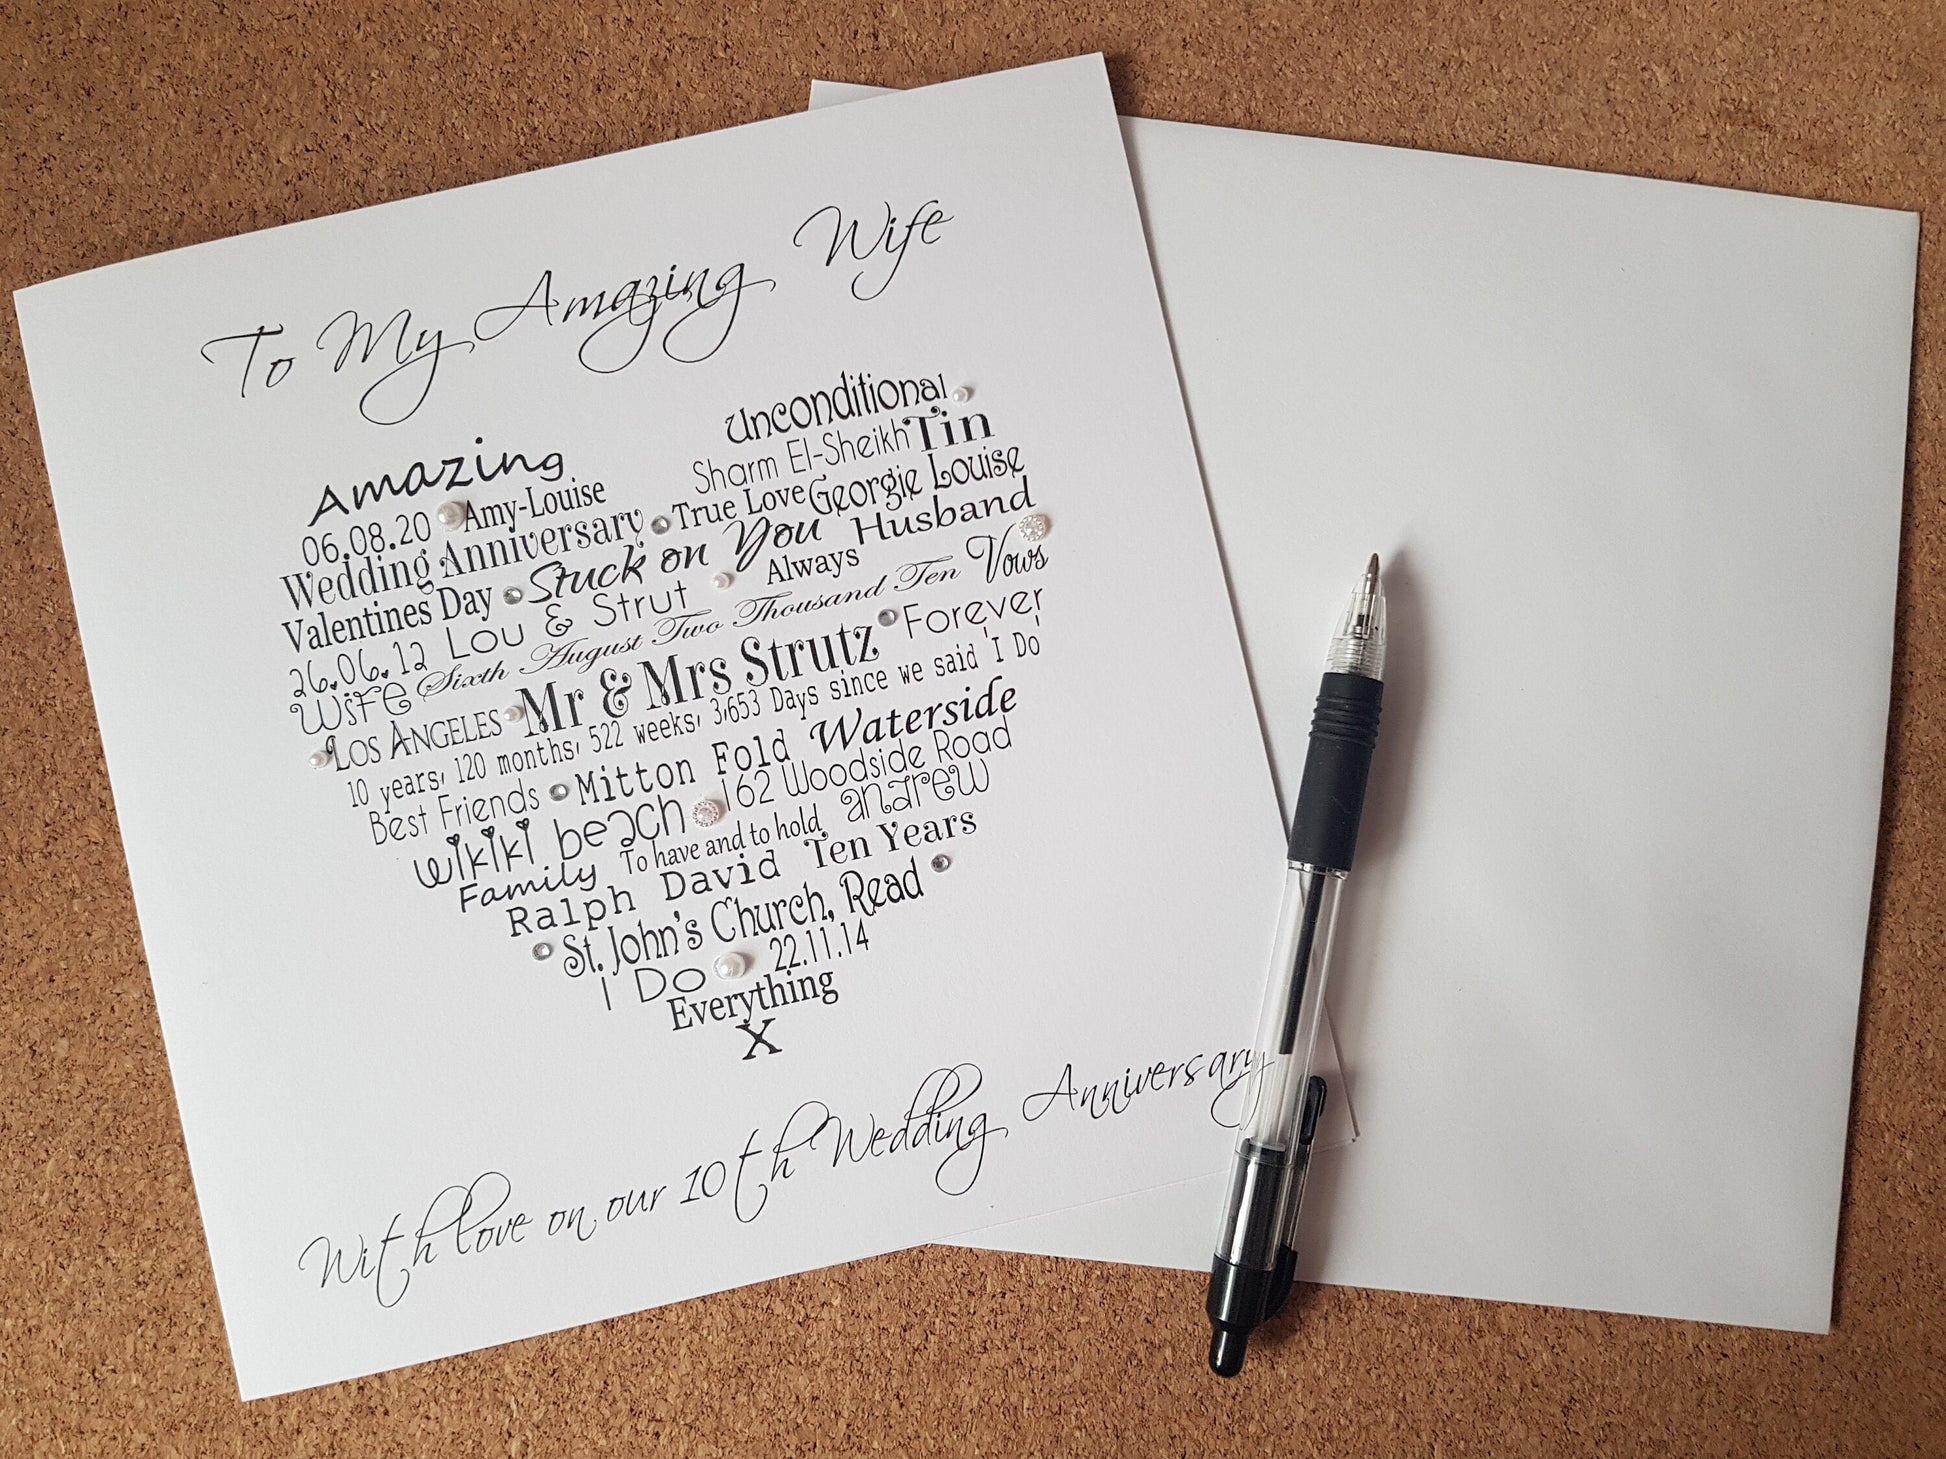 To My Amazing Wife
Unconditional
Amazing Sharm El-Sheikh Tin
06.08.20 Amy-Louise True Love Georgie Louise
Wedding Anniversary Stuck on You Husband
Valentines Day Lou & Strut Always
26.06.12 Sixth August Two Thousand Ten Vows
Wife Mr & Mrs Strutz Forever
Los Angeles 10 years, 120 months, 522 weeks, 3,653 Days since we said 'I Do'
Best Friends Mitton Fold Waterside
wikiki beach 162 Woodside Road
Family To have and to hold andrew
Ralph David Ten Years
St. John's Church, Read
I Do 22.11.14
Everything
X
With love on our 10th Wedding Anniversary